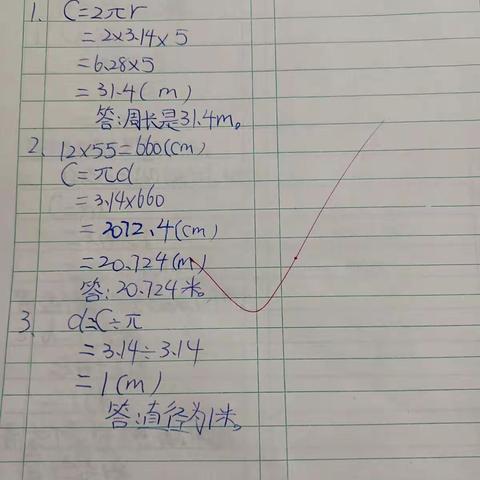 1. C=2πr
=2×3.14×5
=6.28×5
=31.4(m)
答:周长是31.4m。
2、12×55=660(cm)
C=πd
=3.14×660
=2072.4(cm)
=20.724(m)
答:20.724米。
3、d=C÷π
=3.14÷3.14
=1(m)
答:直径为1米。